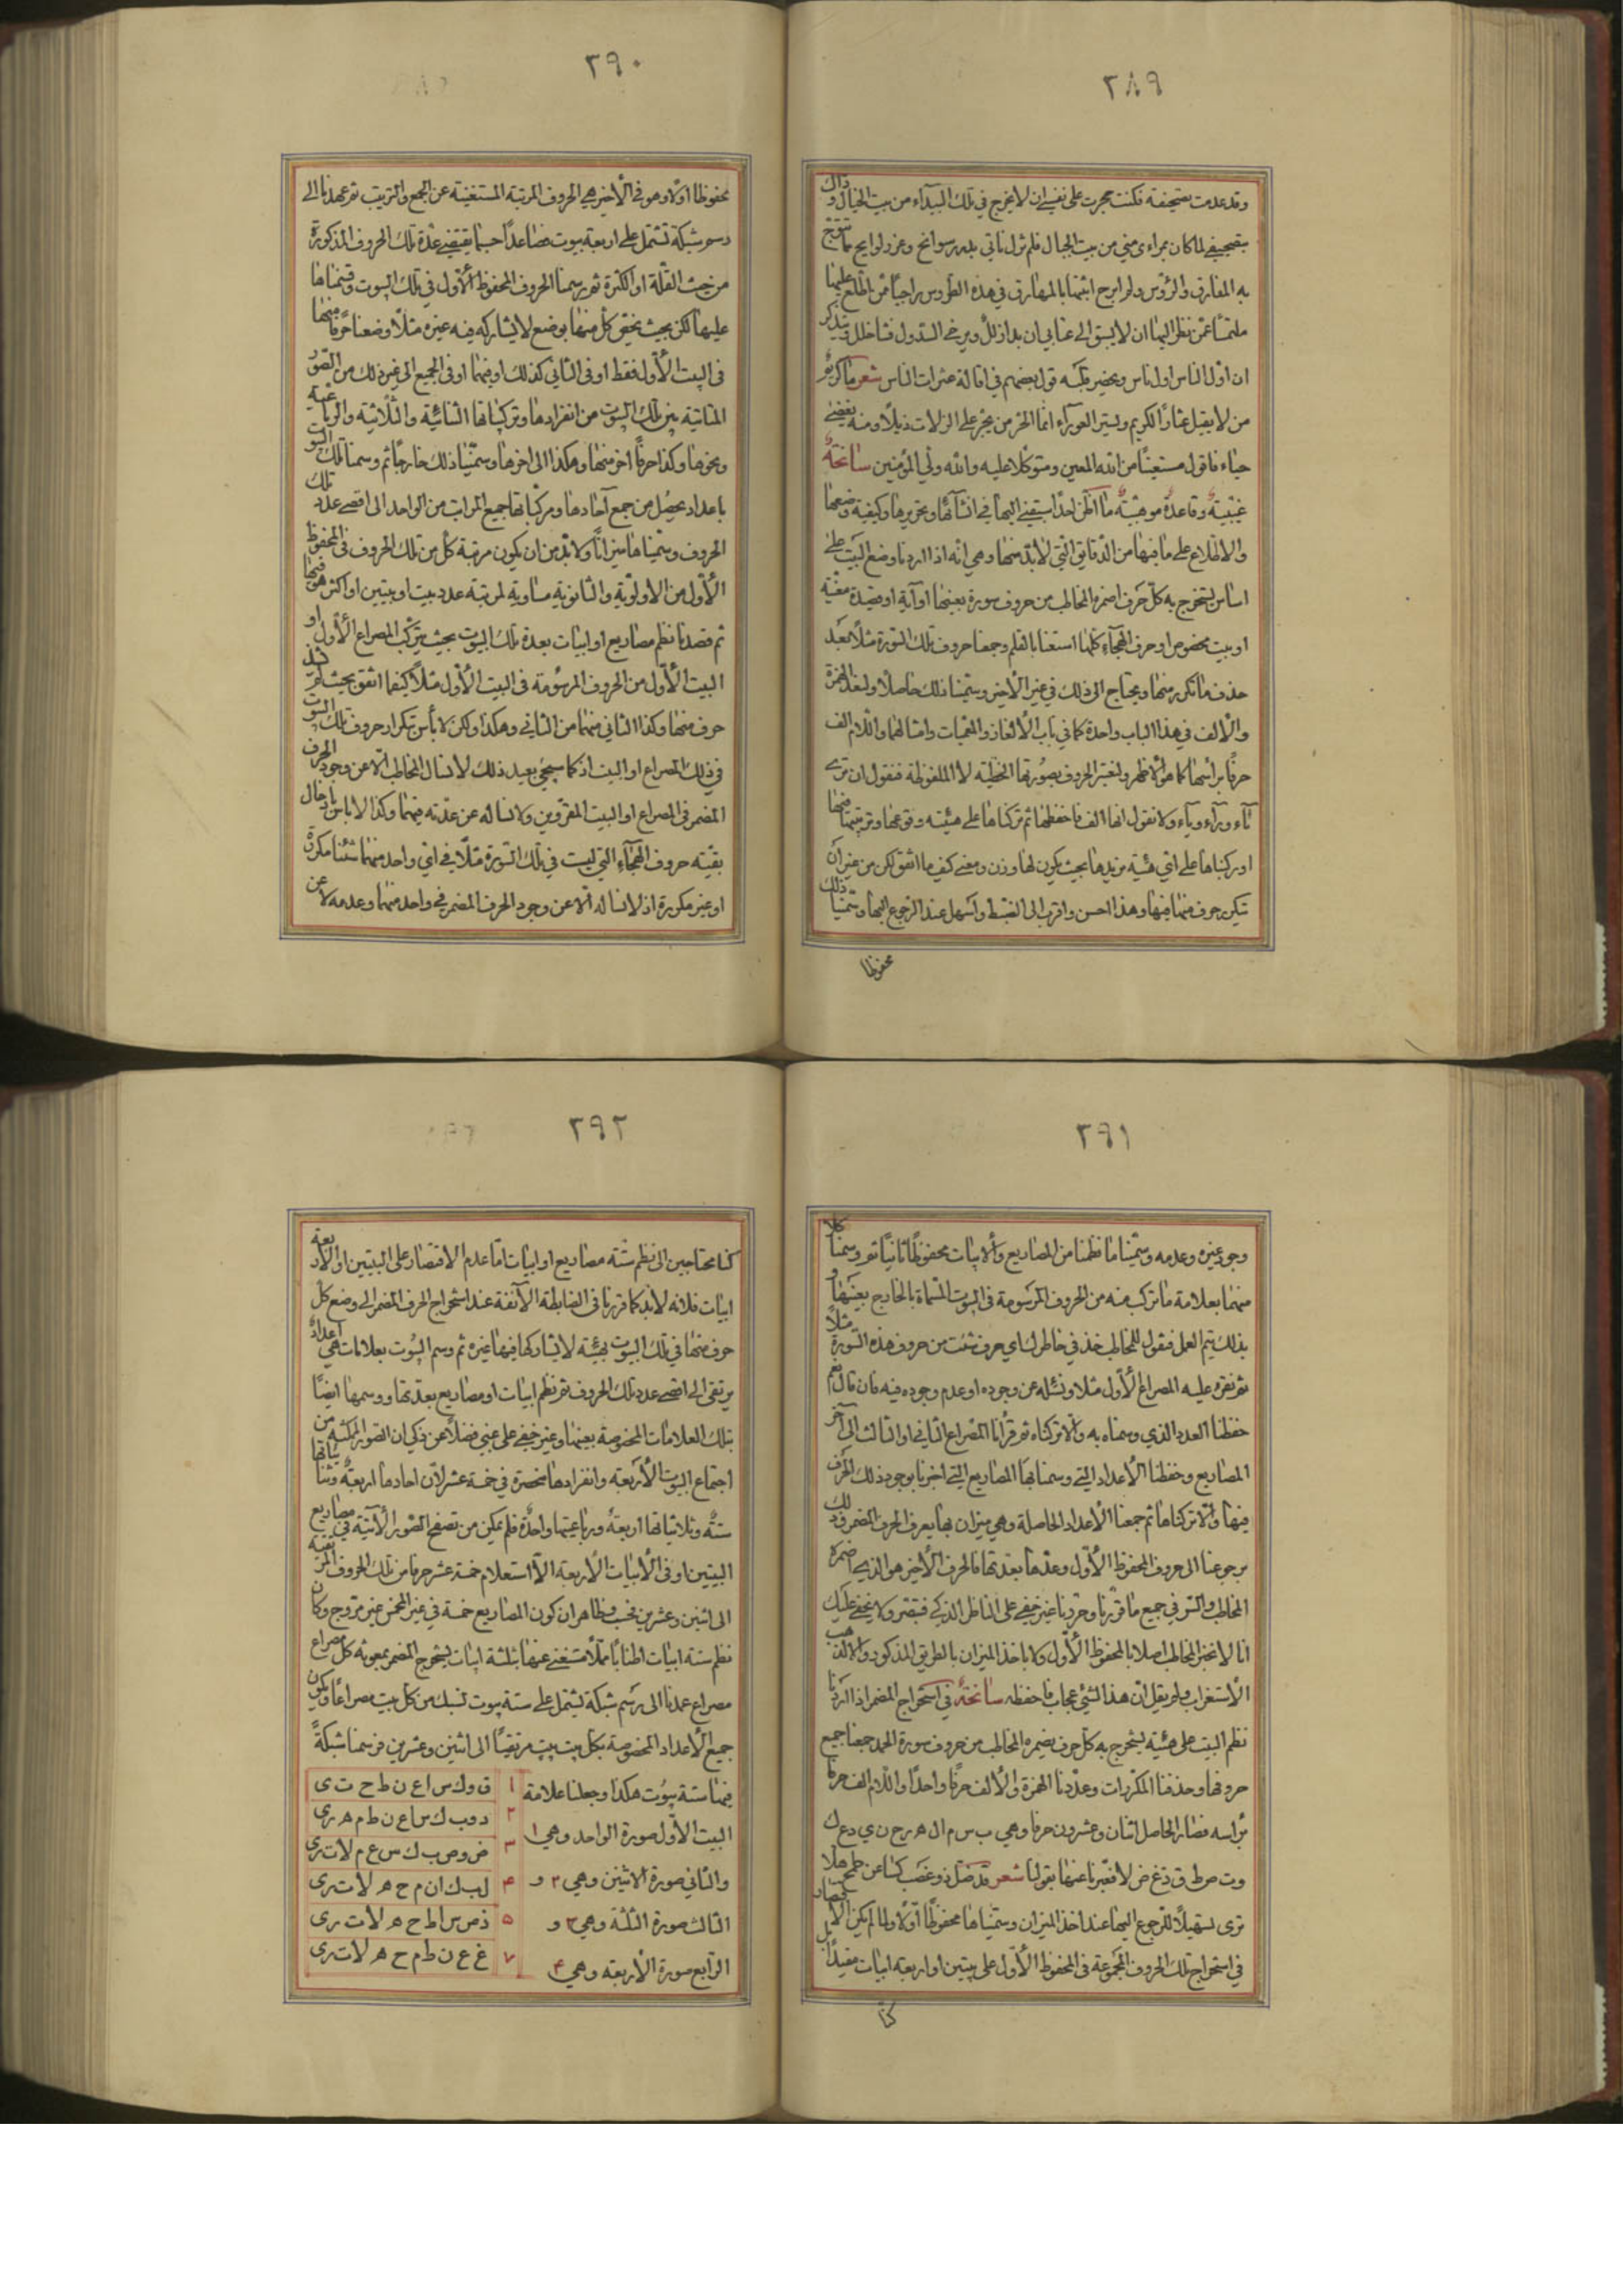 ٢٨٩
وقد عدمت تصحيفه فكنت حجرت على نفسي ان لا يخرج في تلك البيداء من بيت الخيال وذاك
به المفارق والرؤس ولم ابرح اثبتها بالمهارق في هذه الطروس راجيا ممن اطلع عليها
ملتمسا ممن نظر اليها ان لا يسبق الى عتابي ان بدا زلل ويرخي السدول
ان اول الناس اول ناس ويحضر قلبه قول بعضهم في اقالة عثرات الناس شعر
من لا يقيل عثارا الكريم وليستر العوراء انما الحر من يجر على الزلات ذيلا ومنه يغضي
حياء فاقول مستعينا من الله المعين ومتوكلا عليه والله ولي المؤمنين سانحة
غيبية وقاعدة موهبية ما اظن احدا سبقني اليها في انشائها وتحريرها وكيفية وضعها
والاطلاع على ما فيها من الدقايق التي لا بد منها وهي انه اذا اردنا وضع البيت على
اساس يستخرج به كل حرف اضمره المخاطب من حروف سورة بعينها او آية او قصيدة معينة
او بيت مخصوص او حرف الهجاء كلها استعنا بالقلم وجمعنا حروف تلك السورة مثلا بعد
حذف ما تكرر منها ويحتاج الى ذلك في غير الاخير وسمينا ذلك حاصلا ولنعد الهمزة
والالف في هذا الباب واحدة كما في باب الالغاز والمعميات وامثالهما واللام الف
حرفا برأسها كما هو الاظهر ولنعتبر الحروف بصورتها الخطية لا الملفوظة فنقول ان ترى
تاء وراء وياء ولا نقول انها الف فاحفظها ثم تركناها على هيئته وقوعها وترتيبها فيها
او ركبناها على اي هيئة نريدها بحيث يكون لها وزن ومعنى كيف ما اتفق لكن من غير ان
تتكرر حرف منها فيها وهذا احسن واقرب الى الضبط واسهل عند الرجوع اليها وسمينا ذلك
محفوظا
٢٩٠
محفوظا اولا وهو في الاخير هي الحروف المرتبة المستغنية عن الجمع والترتيب ثم عهدنا الى
رسم شبكة تشتمل على اربعة بيوت فصاعدا حسبما يقتضيه عدة تلك الحروف المذكورة
من حيث القلة او الكثرة ثم رسمنا الحروف المحفوظ الاول في تلك البيوت وقسمناها
عليها لكن بحيث يختص كل منها بوضع لا يشاركه فيه غيره مثلا وضعنا حرفا منها
في البيت الاول فقط او في الثاني كذلك او فيهما او في الجميع الى غير ذلك من الصور
المتأتية بين تلك البيوت من انفرادها وتركيباتها الثنائية والثلاثية والرباعية
ونحوها وكذا حرفا اخر منها وهكذا الى اخرها وسمينا ذلك خارجا ثم وسمنا تلك البيوت
باعداد يحصل من جمع آحادها ومركباتها جميع المراتب من الواحد الى اقصى عدد تلك
الحروف وسميناها ميزانا ولا بد من ان يكون مرتبة كل من تلك الحروف في المحفوظ
الاول من الاولوية والثانوية مساوية لمرتبة عدد بيت او بيتين او اكثر هو فيها
ثم قصدنا نظم مصاريع او ابيات بعدة تلك البيوت بحيث يتركب المصراع الاول او
البيت الاول من الحروف المرسومة في البيت الاول مثلا كيفما اتفق بحيث لم يشذ
حرف منها وكذا الثاني منهما من الثاني وهكذا ولكن لا بأس بتكرار حروف تلك البيوت
في ذلك المصراع او البيت اذ كما سيجئ بعيد ذلك لا نسال المخاطب الا عن وجود الحرف
المضمر في المصراع او البيت المقروين ولا نساله عن عدته فيهما وكذا لا باس بادخال
بقية حروف الهجاء التي ليست في تلك السورة مثلا في اي واحد منهما شئنا مكررة
او غير مكررة اذ لا نساله الا عن وجود الحرف المضمر في واحد منهما وعدمه لا عن
٢٩١
وجود غيره وعدمه وسمينا ما نظمنا من المصاريع والابيات محفوظا ثانيا ثم وسمنا كلا
منهما بعلامة ما تركب منه من الحروف المرسومة في البيوت المسماة بالخارج بعينها و
بذلك يتم العمل فنقول للمخاطب خذ في خاطرك اي حرف شئت من حروف هذه السورة مثلا
ثم نقره عليه المصراع الاول مثلا ونسئله عن وجوده او عدم وجوده فيه فان قال نعم
حفظنا العدد الذي وسمناه به والا تركناه ثم قرأنا المصراع الثاني او الثالث الى آخر
المصاريع وحفظنا الاعداد التي وسمنا بها المصاريع التي اخبرنا بوجود ذلك الحرف
فيها والا تركناها ثم جمعنا الاعداد الحاصلة وهي ميزان بها يعرف الحرف المضمر وذلك
برجوعنا الى حروف المحفوظ الاول وعدها بعدتها فالحرف الاخير هو الذي اضمره
المخاطب والسر في جميع ما قررنا وحررنا غير خفي على الناظر الذكي فتبصر ولا يخفى عليك
انا لا نخبر المخاطب اصلا بالمحفوظ الاول ولا باخذ الميزان بالطريق المذكور والا لذهب
الاستغراب ولم يقل ان هذا لشئ عجاب فاحفظه سانحة في استخراج المضمر اذا اردنا
نظم البيت على هيئة يستخرج به كل حرف يضمره المخاطب من حروف سورة الحمد جمعنا جميع
حروفها وحذفنا المكررات وعددنا الهمزة والالف حرفا واحدا واللام الف حرفا
برأسه فصار الحاصل اثنان وعشرون حرفا وهي ب س م ال ه ر ح ن ي د ع ك
وت ص ط ق ذ غ ض لا فعبرنا عنها بقولنا شعر قد ضل ذو غصب كسا عن طمح هلا
ترى تسهيلا للرجوع اليها عند اخذ الميزان وسميناها محفوظا اولا ولما لم يكن الاقتصار
في استخراج تلك الحروف المجموعة في المحفوظ الاول على بيتين او اربعة ابيات مفيدا بل
كنا
٢٩٢
كنا محتاجين الى نظم ستة مصاريع او ابيات اما عدم الاقتصار على البيتين او الاربعة
ابيات فلانه لا بد كما قررنا في الضابطة الآنفة عند استخراج الحرف المضمر الى وضع كل
حرف منها في تلك البيوت بهيئة لا يشاركها فيها غيره ثم وسم البيوت بعلامات هي اعداد
يرتقي الى اقصى عدد تلك الحروف ثم نظم ابيات او مصاريع بعدتها ووسمها ايضا
بتلك العلامات المخصوصة بعينها وغير خفي على غبي فضلا عن ذكي ان الصور الممكنة من
اجتماع البيوت الاربعة وانفرادها منحصرة في خمسة عشر لان احادها اربعة وثنائياتها
ستة وثلاثياتها اربعة ورباعيتها واحدة فلم يمكن من تصفح الصور الآتية في مصاريع
البيتين او في الابيات الاربعة الا استعلام خمسة عشر حرفا من تلك الحروف المرتقية
الى اثنين وعشرين فحسب وظاهر ان كون المصاريع خمسة في غير المخمس غير مروج وكان
نظم ستة ابيات اطنابا مملا مستغنى عنها بثلثة ابيات يستخرج المضمر بمعونة كل مصراع
مصراع عمدنا الى رسم شبكة تشتمل على ستة بيوت لنسبك من كل بيت مصراعا ويكون
جميع الاعداد المخصوصة بكل بيت بيت مرتقيا الى اثنين وعشرين فرسمنا شبكة
فيها ستة بيوت هكذا وجعلنا علامة
البيت الاول صورة الواحد وهي ١
والثاني صورة الاثنين وهي ٢ و
الثالث صورة الثلثة وهي ٣ و
الرابع صورة الاربعة وهي ۴
١ ق و ك س ا ع ن ط ح ت ى
٢ د و ب ك س ا ع ن ط م ه ر ى
٣ ض و ص ب ك س ع م لا ت ر ى
۴ ل ب ك ا ن م ح ه لا ت ر ى
۵ ذ ص س ا ط ح ه لا ت ر ى
٧ غ ع ن ط م ح ه لا ت ر ى